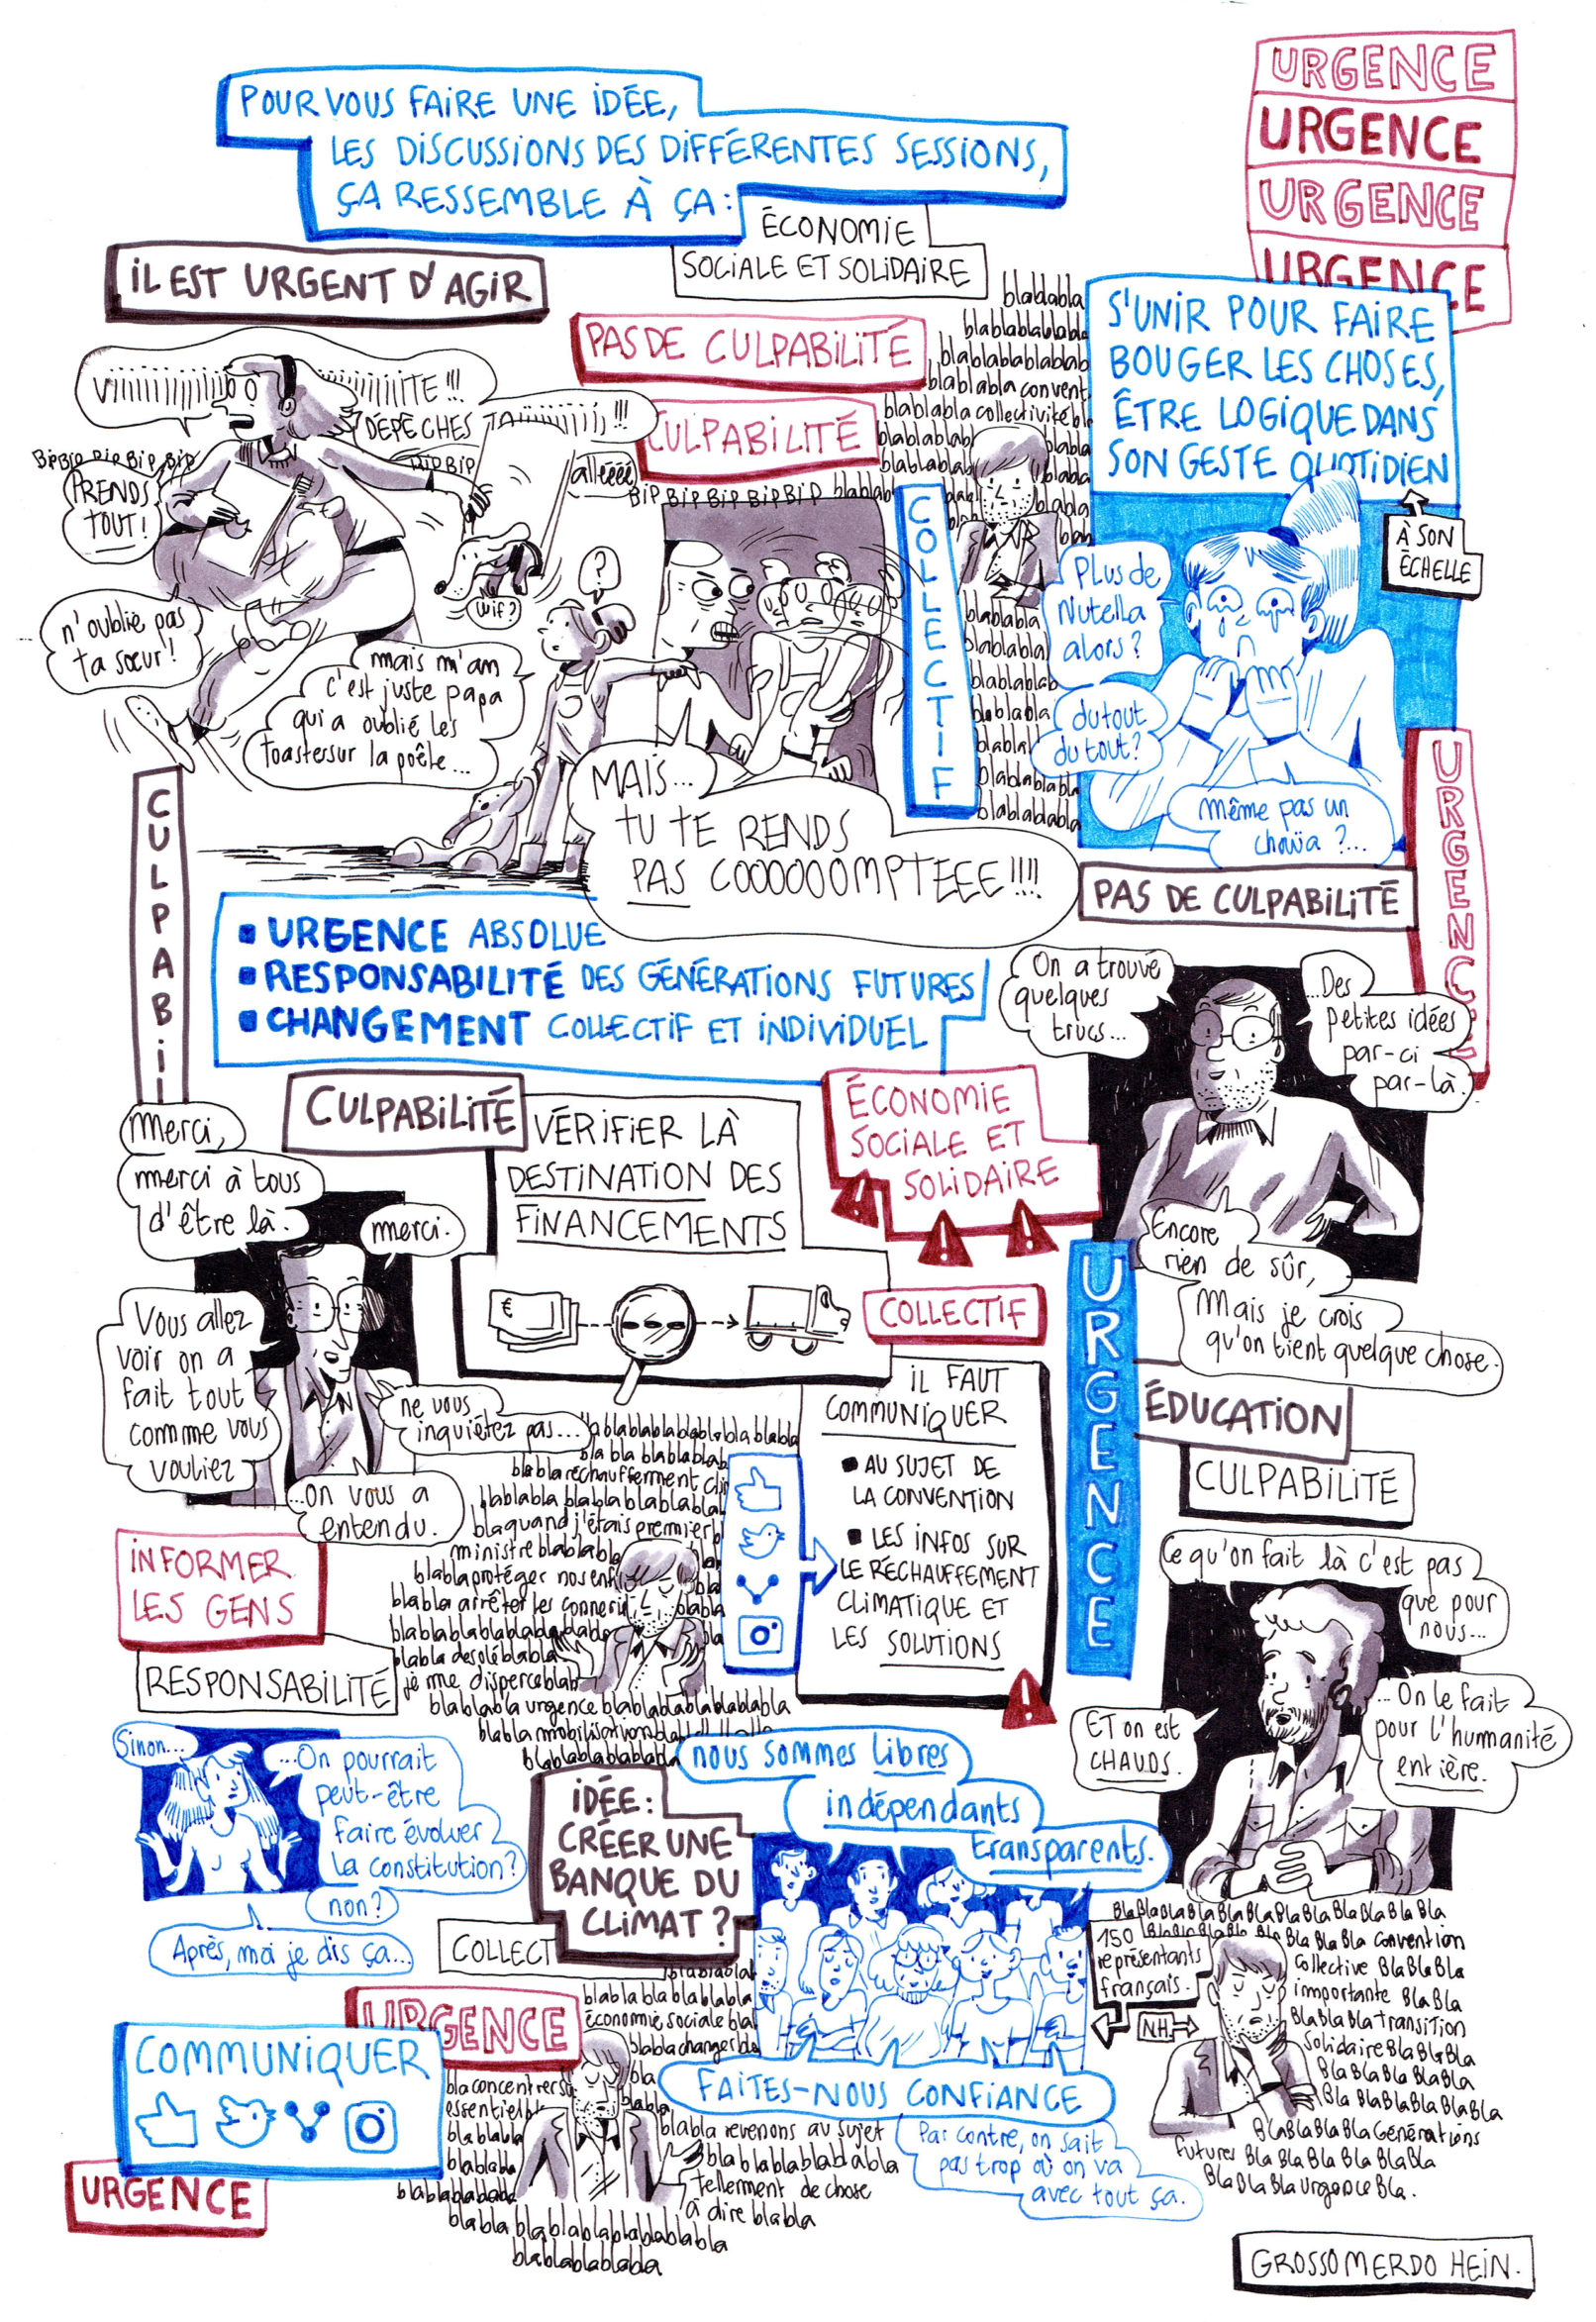 POUR VOUS FAIRE UNE IDÉE,
LES DISCUSSIONS DES DIFFÉRENTES SESSIONS,
ÇA RESSEMBLE À ÇA :
URGENCE
URGENCE
URGENCE
URGENCE
ÉCONOMIE
SOCIALE ET SOLIDAIRE
IL EST URGENT D'AGIR
PAS DE CULPABILITÉ
CULPABILITÉ
S'UNIR POUR FAIRE
BOUGER LES CHOSES,
ÊTRE LOGIQUE DANS
SON GESTE QUOTIDIEN
À SON
ÉCHELLE
DÉPÊCHES
allééé
BIP BIP BIP BIP BIP
PRENDS
TOUT !
n'oublie pas
ta sœur !
Wif ?
?
mais m'am
c'est juste papa
qui a oublié les
toasters sur la poêle...
MAIS...
TU TE RENDS
PAS COOOOOOMPTEEE !!!!
COLLECTIF
blablabla
blabla convent
blablabla collectivité
Plus de
Nutella
alors ?
du tout
du tout ?
même pas un
chouïa ?...
URGENCE
PAS DE CULPABILITÉ
CULPABILI
URGENCE ABSOLUE
RESPONSABILITÉ DES GÉNÉRATIONS FUTURES
CHANGEMENT COLLECTIF ET INDIVIDUEL
On a trouvé
quelques
trucs...
...Des
petites idées
par-ci
par-là.
Encore
rien de sûr,
Mais je crois
qu'on tient quelque chose.
CULPABILITÉ
VÉRIFIER LÀ
DESTINATION DES
FINANCEMENTS
€
ÉCONOMIE
SOCIALE ET
SOLIDAIRE
COLLECTIF
Merci,
merci à tous
d'être là.
merci.
Vous allez
voir on a
fait tout
comme vous
vouliez
ne vous
inquiétez pas...
...on vous a
entendu.
IL FAUT
COMMUNIQUER
AU SUJET DE
LA CONVENTION
LES INFOS SUR
LE RÉCHAUFFEMENT
CLIMATIQUE ET
LES SOLUTIONS
URGENCE
ÉDUCATION
CULPABILITÉ
blabla réchauffement
bla quand j'étais premier
ministre blablabla
blabla protéger nos enf
blabla arrêter les
blabla désolé blabla
je me disperce blab
blablabla urgence blablablablablabla
blabla mobilisation
INFORMER
LES GENS
RESPONSABILITÉ
Ce qu'on fait là c'est pas
que pour
nous...
... On le fait
pour l'humanité
entière.
ET on est
CHAUDS.
Sinon...
...On pourrait
peut-être
faire évoluer
la constitution ?
non ?
Après, moi je dis ça...
IDÉE :
CRÉER UNE
BANQUE DU
CLIMAT ?
COLLECT
nous sommes libres
indépendants
transparents.
FAITES-NOUS CONFIANCE
Par contre, on sait
pas trop où on va
avec tout ça.
150
représentants
français.
NH
Bla Bla Bla convention
collective Bla Bla Bla
importante Bla Bla
Bla Bla Bla transition
solidaire Bla Bla Bla
Bla Bla Bla Bla Générations
futures Bla Bla Bla Bla Bla Bla
Bla Bla Bla Urgence Bla.
URGENCE
COMMUNIQUER
URGENCE
économie sociale bla
blabla changer
bla concentrer
essentiel
blabla revenons au sujet
blablablablablabla
tellement de chose
à dire blabla
blablablablabla
GROSSO MERDO HEIN.